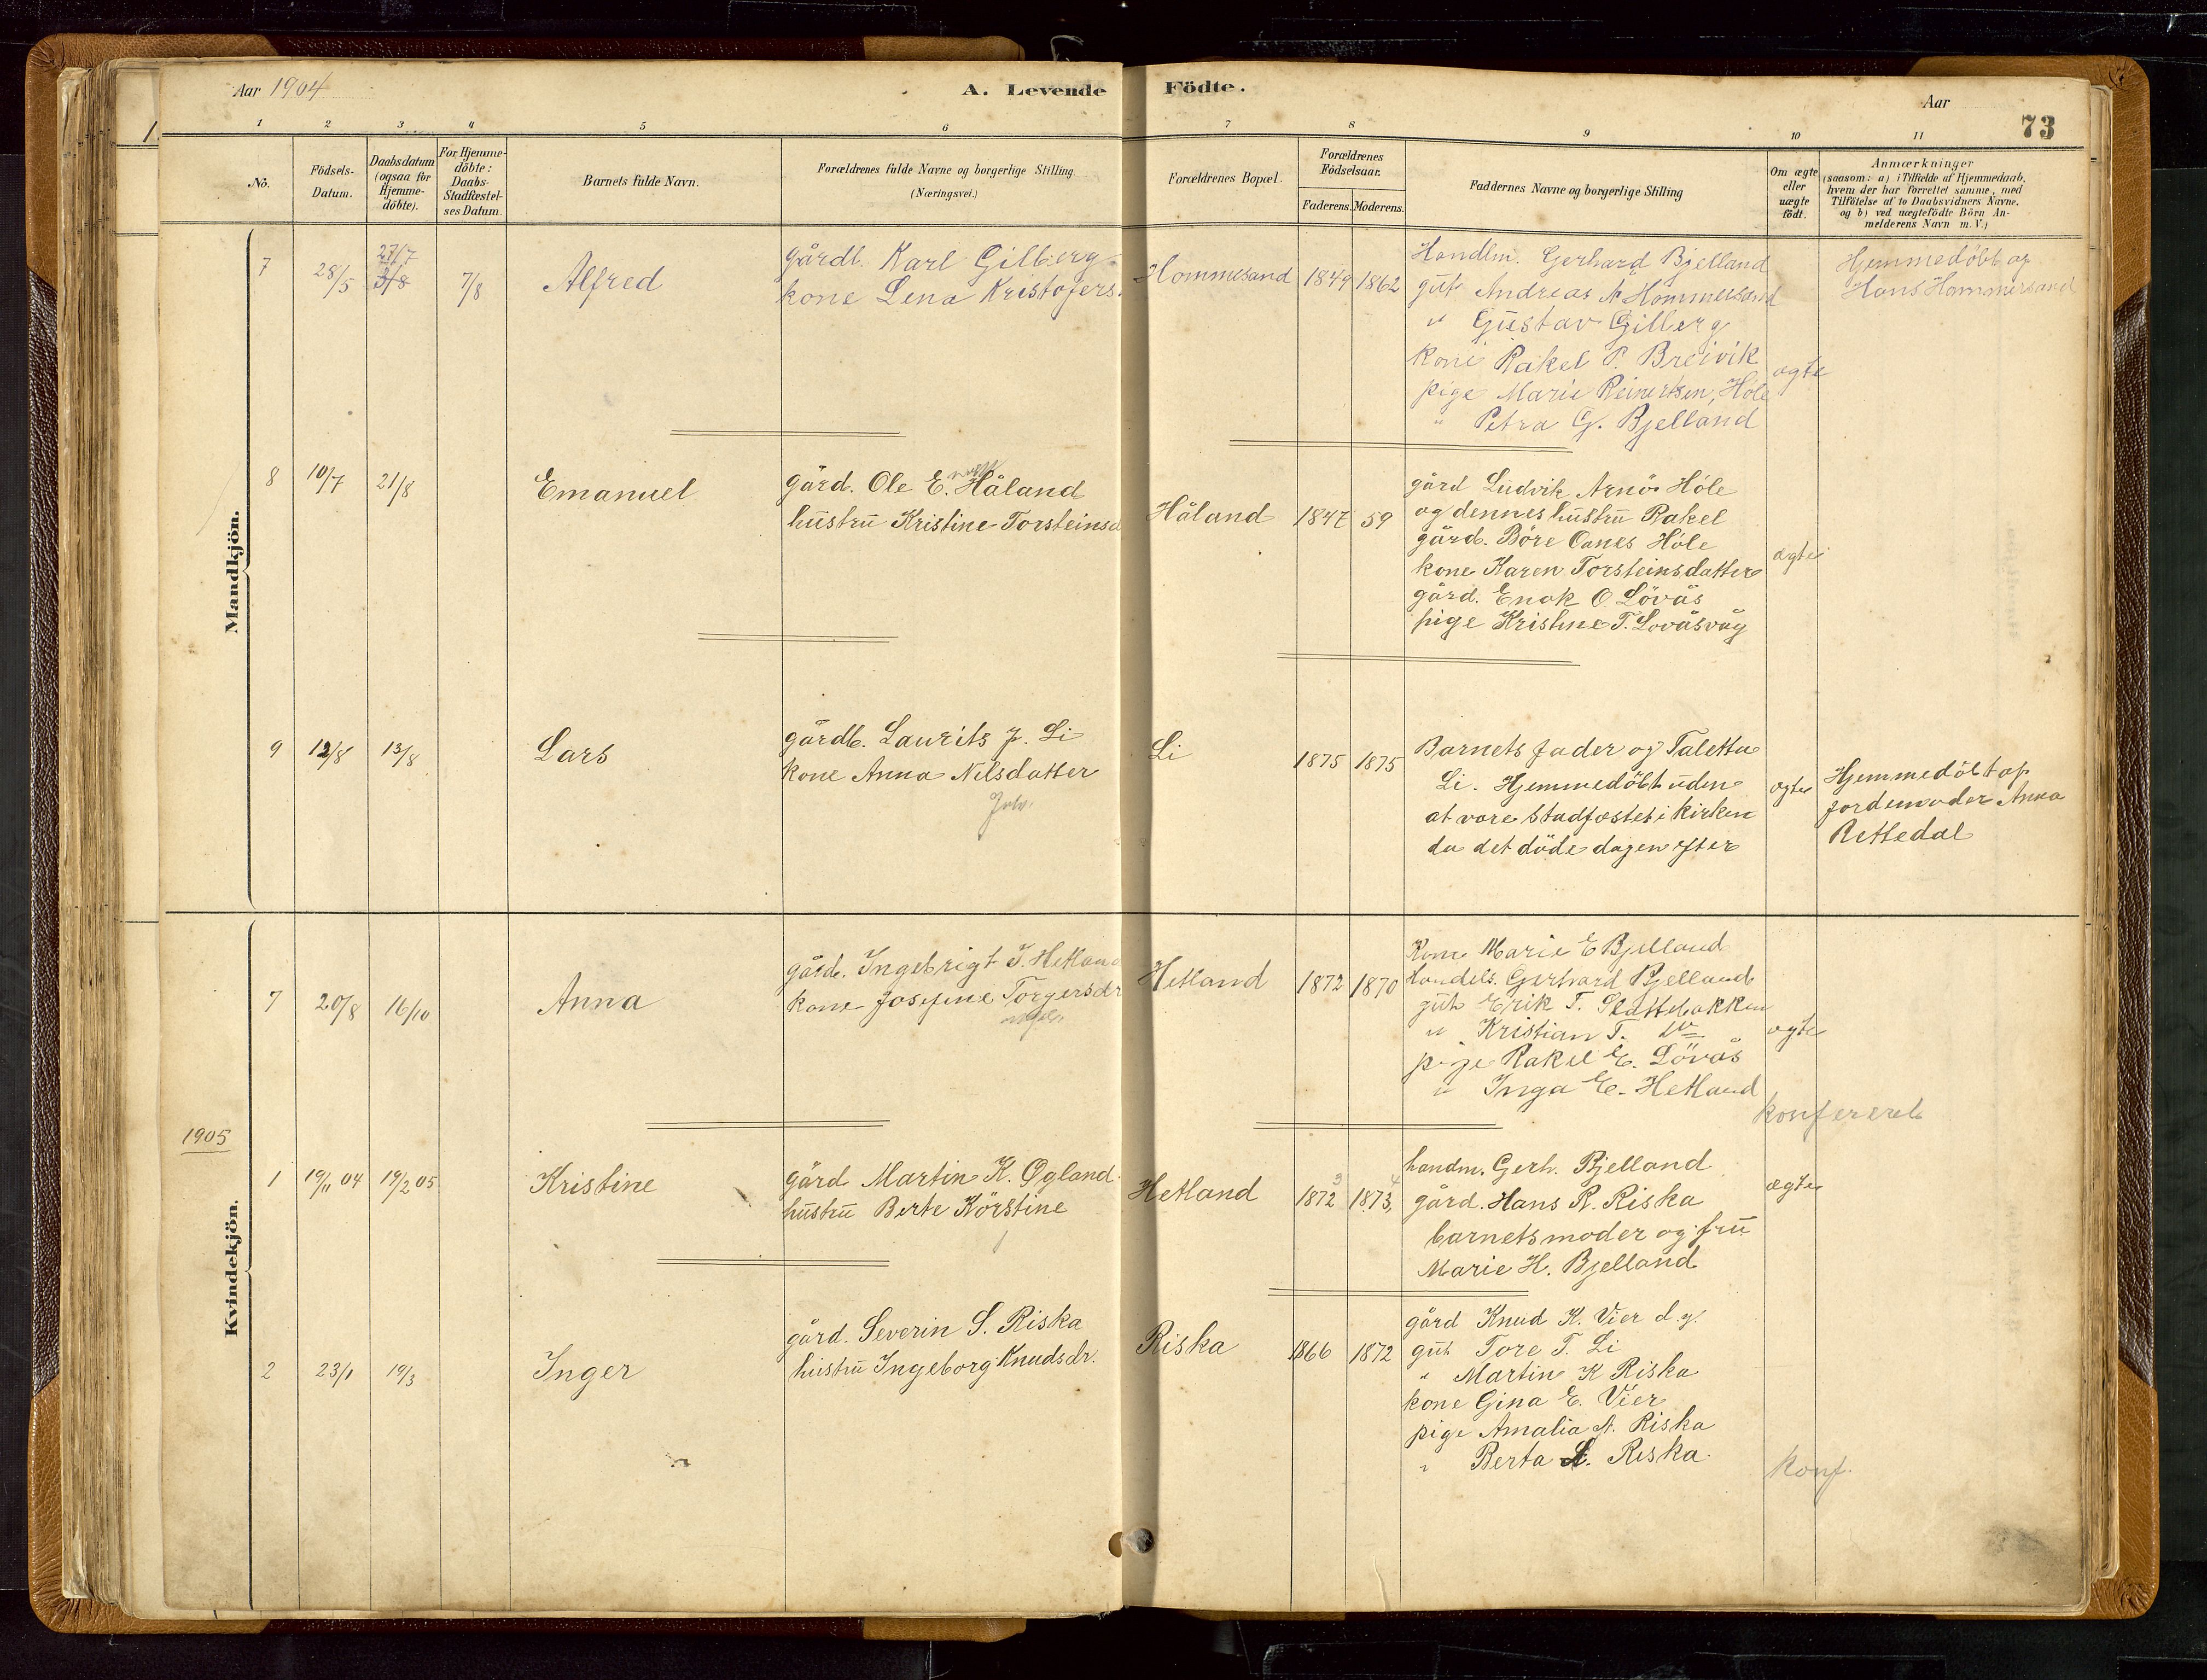 Aar 1904
A. Levende Födte.
Aar
73
1 2 3 4 5 6 7 8 9 10 11
No.
Födsels-Datum.
Daabsdatum (ogsaa for Hjemme-döbte).
For Hjemme-döbte: Daabs-Stadfæstel-ses Datum.
Barnets fulde Navn.
Forældrenes fulde Navne og borgerlige Stilling (Næringsvei.)
Forældrenes Bopæl.
Forældrenes Födselsaar.
Faderens. Moderens.
Faddernes Navne og borgerlige Stilling
Om ægte eller uægte födt.
Anmærkninger
(saasom: a) i Tilfælde af Hjemmedaab,
hvem der har forrettet samme, med
Tilföielse af to Daabsvidners Navne,
og b) ved uægtefödte Börn An-
melderens Navn m. V.)
Mandkjön.
7 28/5 27/7 3/8 7/8 Alfred
gårdb. Karl Gilberg
kone Lena Kristofers.
Hommesand 1849 1862
Handlm. Gerhard Bjelland
gut Andreas A Hommersand
" Gustav Gilberg
kone Rakel P. Breivik
pige Marie Reinertsen, Hole
" Petra G. Bjelland
ægte
Hjemmedöbt af
Hans Hommersand
8 10/7 21/8 Emanuel
gård. Ole E. Håland
hustru Kristine Torsteinsd
Håland 1847 59
gård Ludvik Arnö Höle
og dennes hustru Rakel
gård. Böre Oanes Höle
kone Karen Torsteinsdatter
gård. Enok O Lövås
pige Kristine T. Lovåsvåg
ægte
9 12/8 13/8 Lars
gårdb. Laurits J. Li
kone Anna Nilsdatter
Li 1875 1875
Barnets fader og Taletta
Li. Hjemmedöbt uden
at vore Stadfæstet i Kirken
da det döde dagen efter
ægte
Hjemmedöbt af
jordemoder Anna
Rettedal
Kvindekjön.
7 20/8 16/10 Anna
gård. Ingebrigt T. Hetland
kone Josefine Torgersdr
Hetland 1872 1870
Kone Marie E Bjelland
Handels. Gerhard Bjelland
gut Erik T. Slettebakken
" Kristian T. do
pige Rakel E. Lövås
" Inga E. Hetland
ægte
konfereret
1905
1 19/11 04 19/2 05 Kristine
gård Martin K. Øgland
hustru Berte Körstine
Hetland 1872 3 1873, 4
handm. Gerh. Bjelland
gård. Hans R. Riska
barnets moder og fru
Marie H. Bjelland
ægte
2 23/1 19/3 Inger
gård. Severin S. Riska
hustru Ingeborg Knudsdr.
Riska 1866 1872
gård Knud K. Vier d.y.
gut Tore T. Li
" Martin K Riska
kone Gina E. Vier
pige Amalia A. Riska
" Berta L. Riska
konf.